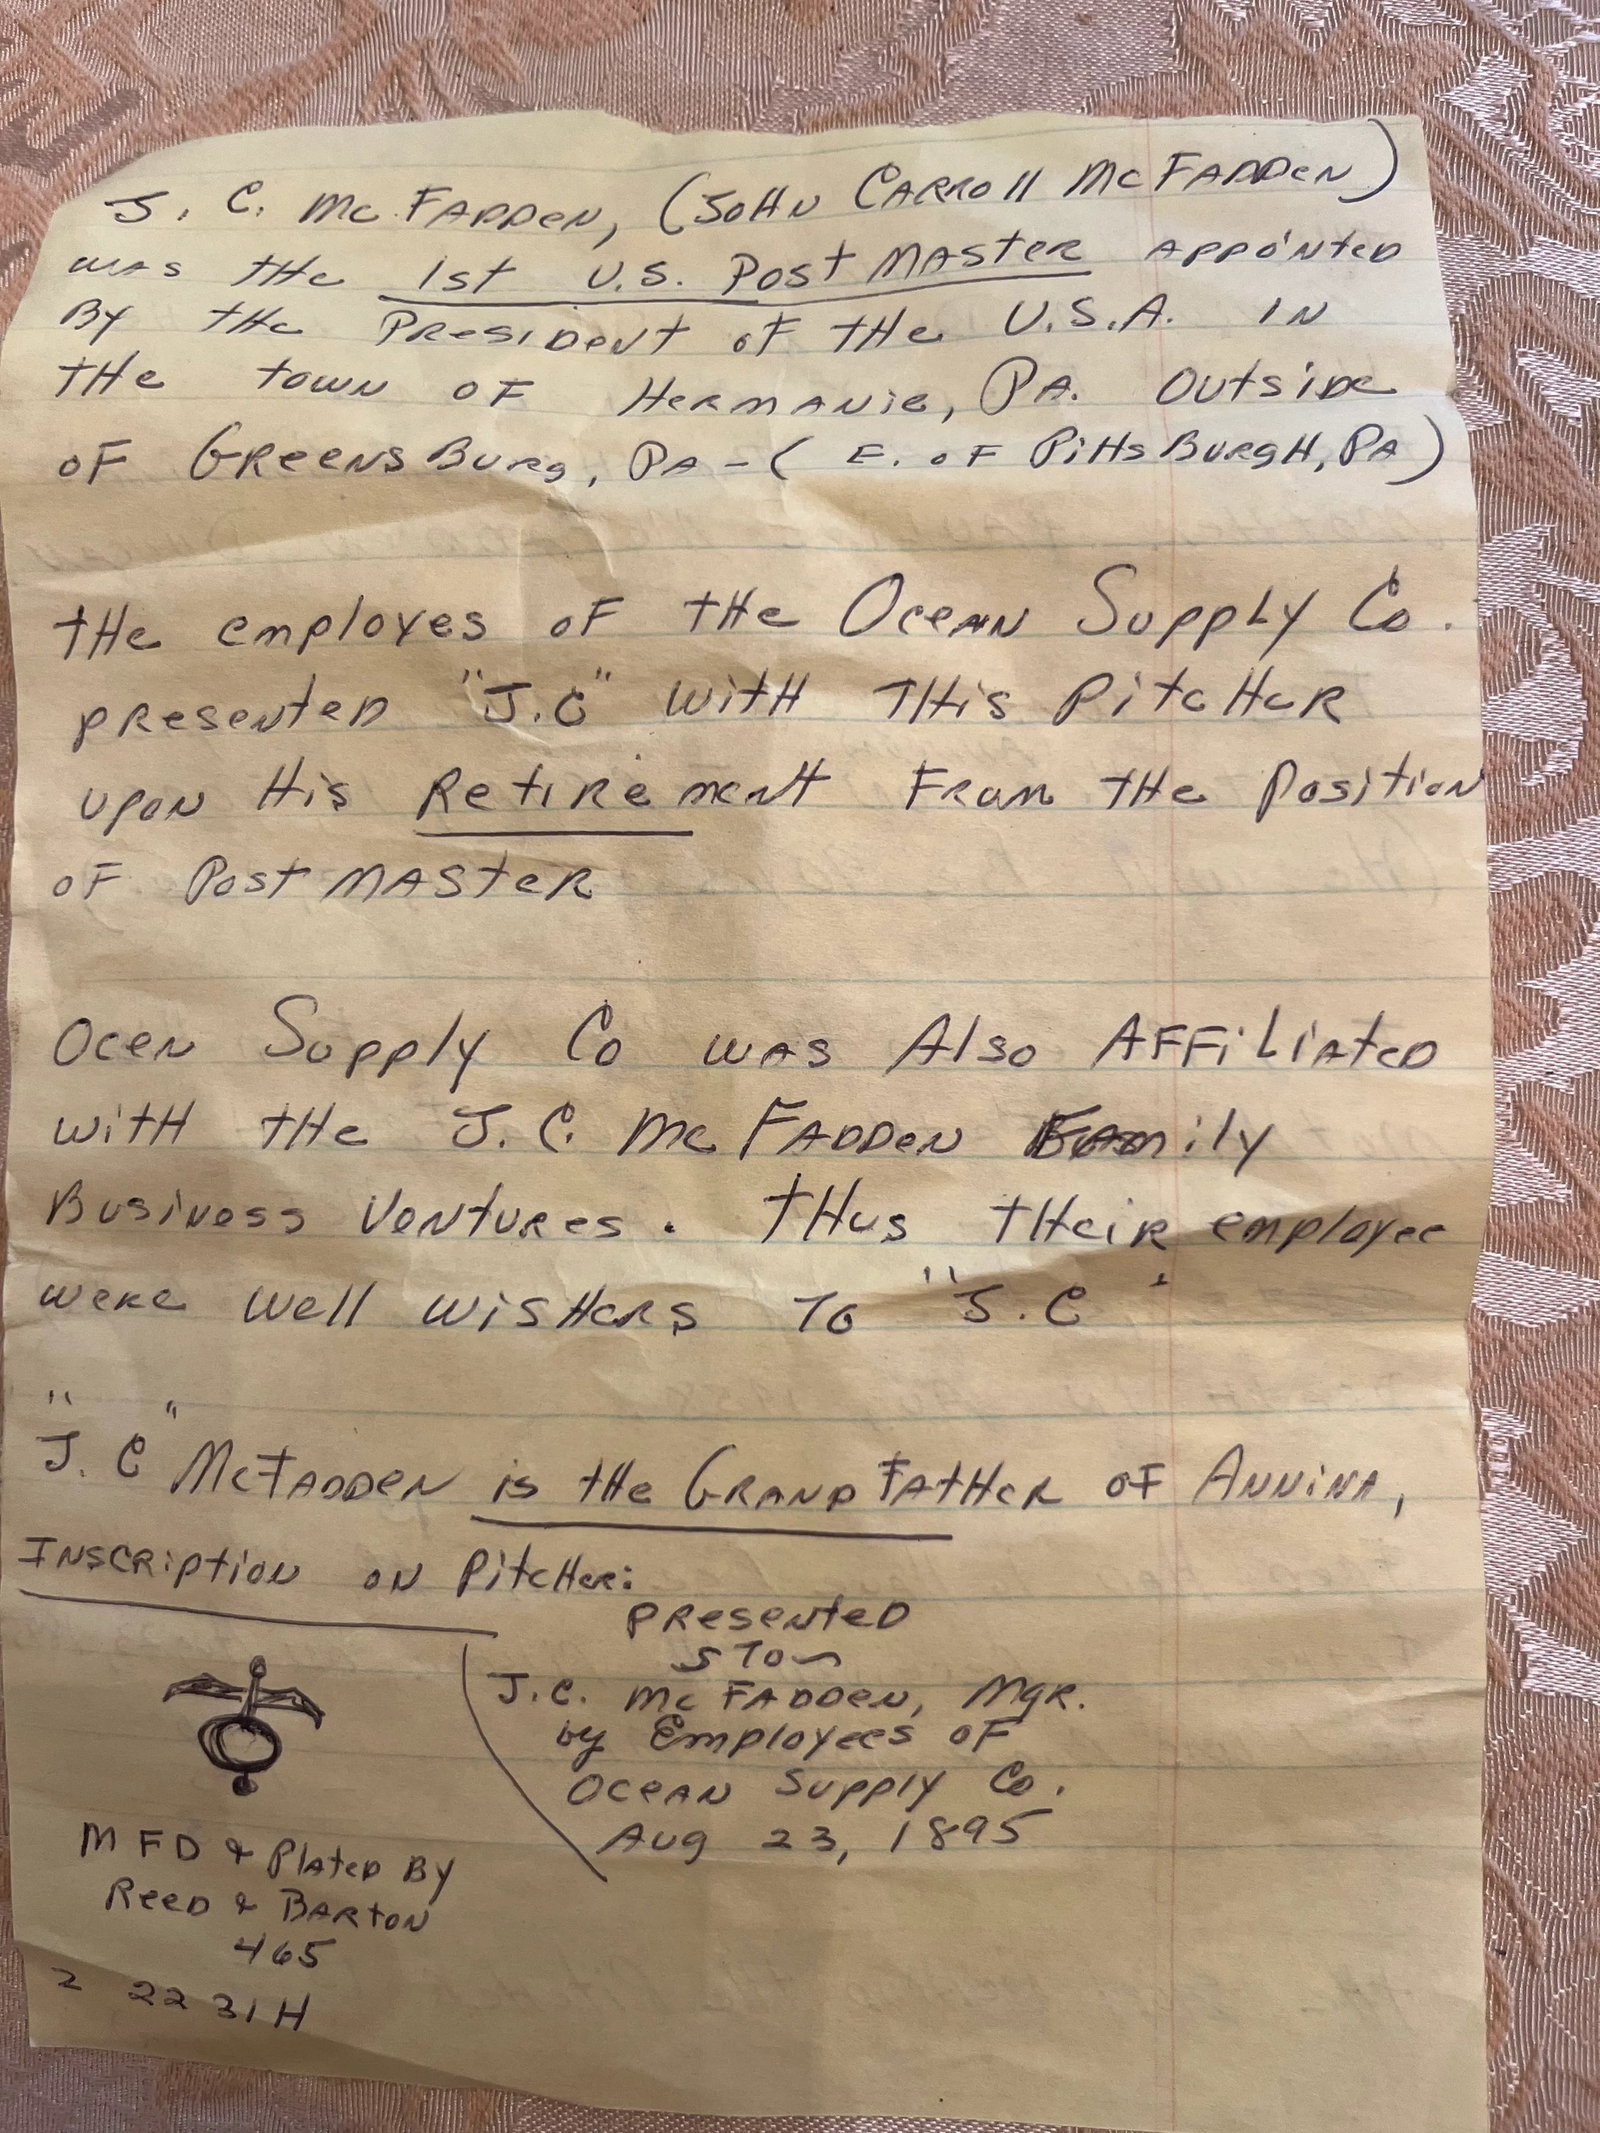 J. C. Mc FADDEN, (JOHN CARROLL McFADDEN)
was the 1st U.S. Post MASTER APPOiNTED
By the PRESIDENT OF THE U.S.A. IN
THE town OF HERMANIE, PA. OUTSIDE
OF GREENSBURG, PA - (E. OF PittsBURGH, PA)
THE employes OF THE OCEAN Supply Co.
PRESENTED "J.C" WITH THIS PitcHER
UPON His RetIREment FROM THE Position
OF Post MASTER
OCEN Supply Co WAS Also AFFiliATED
WITH THE J.C. Mc FADDEN FAMily
Business VENTURES. THUS THEIR employee
WERE Well WISHERS TO "J.C"
"J.C" McFADDEN is the GRANDFATHER OF ANNINA,
INSCRIPTION ON PitcHER:
PRESENTED
TO
J.C. Mc FADDEN, MgR.
by Employees OF
OCEAN Supply Co.
AUg 23, 1895
MFD & PlATED By
REED & BARTON
465
2 2231H